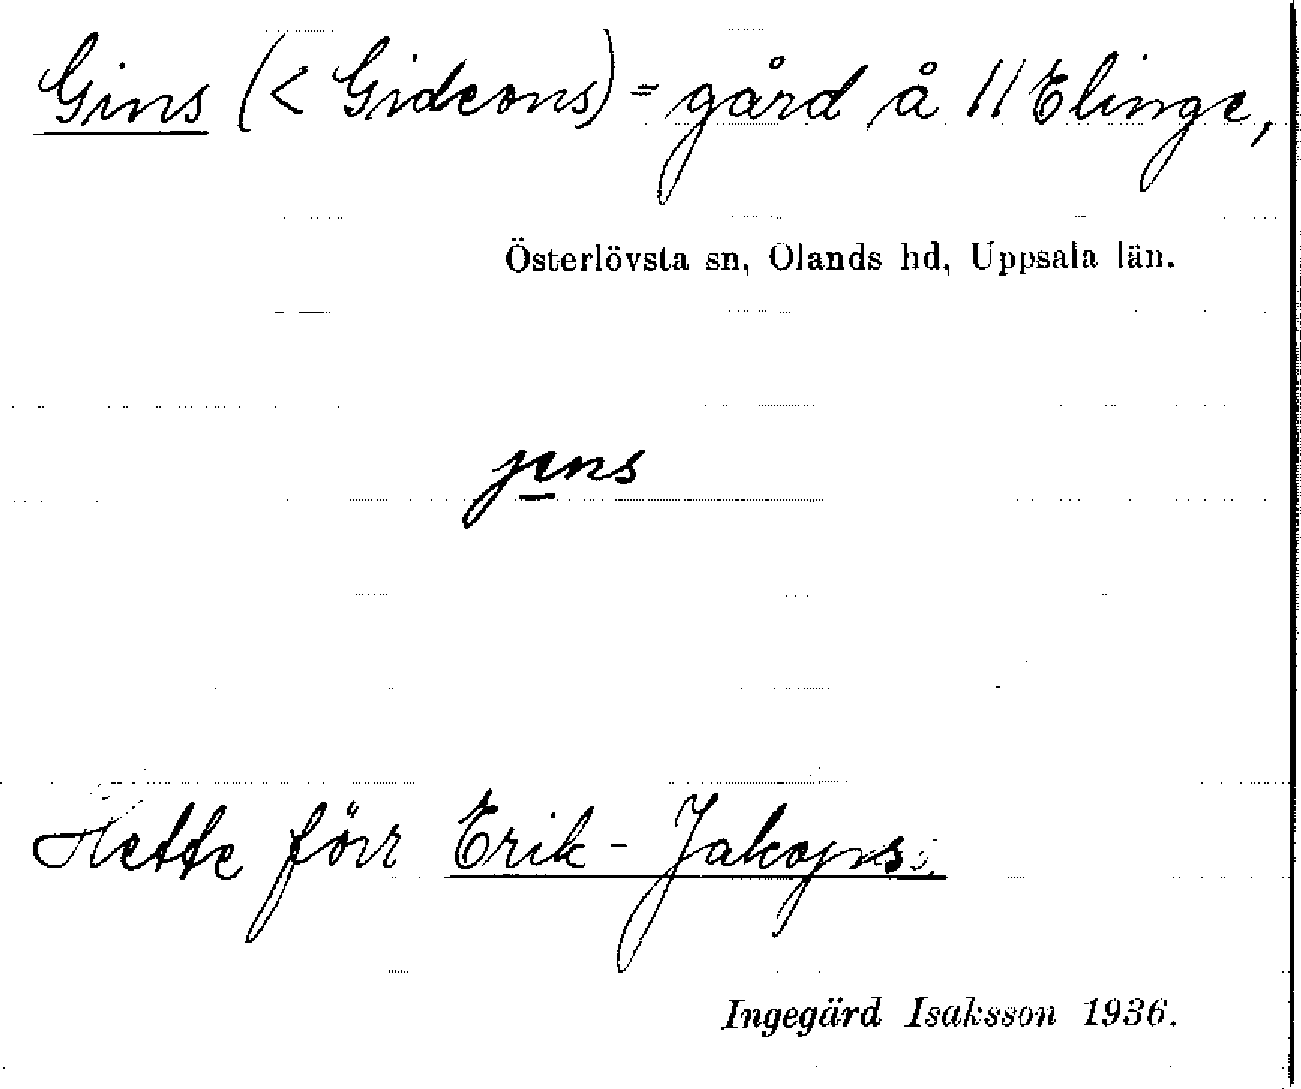 Gins (< Gideons) = gård å 11 Elinge,
Österlövsta sn, Olands hd, Uppsala län.
jens
Hette förr Erik-Jakops.
Ingegärd Isaksson 1936.